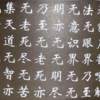 法无眼界乃至
无意识界无无
明亦无无明尽
乃至无老死亦
无老死尽无苦
集灭道无智亦